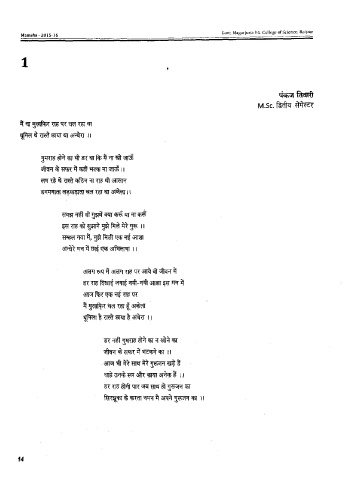 Manisha - 2015-16
Govt. Nagarjuna P.G. College of Science, Raipur
1
पंकज तिवारी
M.Sc. द्वितीय सेमेस्टर
मैं था मुसाफिर राह पर चल रहा था
धूमिल थे रास्ते छाया था अन्धेरा ।।
गुमराह होने का भी डर था कि मैं ना खो जाऊँ
जीवन के सफर में कहीं भटक ना जाऊँ ।
लग रहे थे रास्ते कठिन ना राह थी आसान
डगमगाता लड़खड़ाता चल रहा था अकेला।।
समझ नहीं थी मुझमें क्या करूँ या ना करूँ
इस राह को सुझाने मुझे मिले मेरे गुरू ।।
सम्भल गया मैं, मुझे मिली एक नई आशा
अन्धेरे मन में लाई एक अभिलाषा ।।
अलग रूप में अलग राह पर आये वो जीवन में
हर राह दिखाई जगाई नयी-नयी आशा इस मन में
आज फिर एक नई राह पर
मैं मुसाफिर चल रहा हूँ अकेला
धूमिल है रास्ते छाया है अंधेरा ।।
डर नहीं गुमराह होने का न खोने का
जीवन के सफर में भटकने का ।।
आज भी मेरे साथ मेरे गुरूजन खड़े हैं
चाहे उनके रूप और काया अनेक हैं ।।
हर राह होगी पार जब साथ हो गुरूजन का
सिरझुका के करता नमन मैं अपने गुरूजन का ।।
14